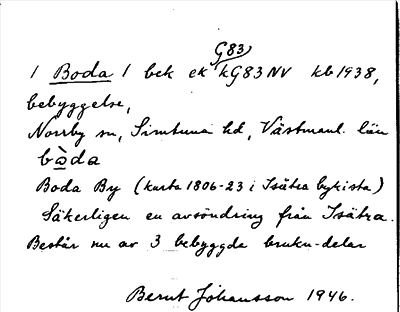 G83
1 Boda 1 bek ek kG83NV kb 1938,
bebyggelse,
Norrby sn, Simtuna hd, Västmanl. län
bòda
Boda By (karta 1806-23 i Isätra bykista)
Säkerligen en avsöndring från Isätra.
Består nu av 3 bebyggda bruknⁿ-delar
Bernt Johansson 1946.